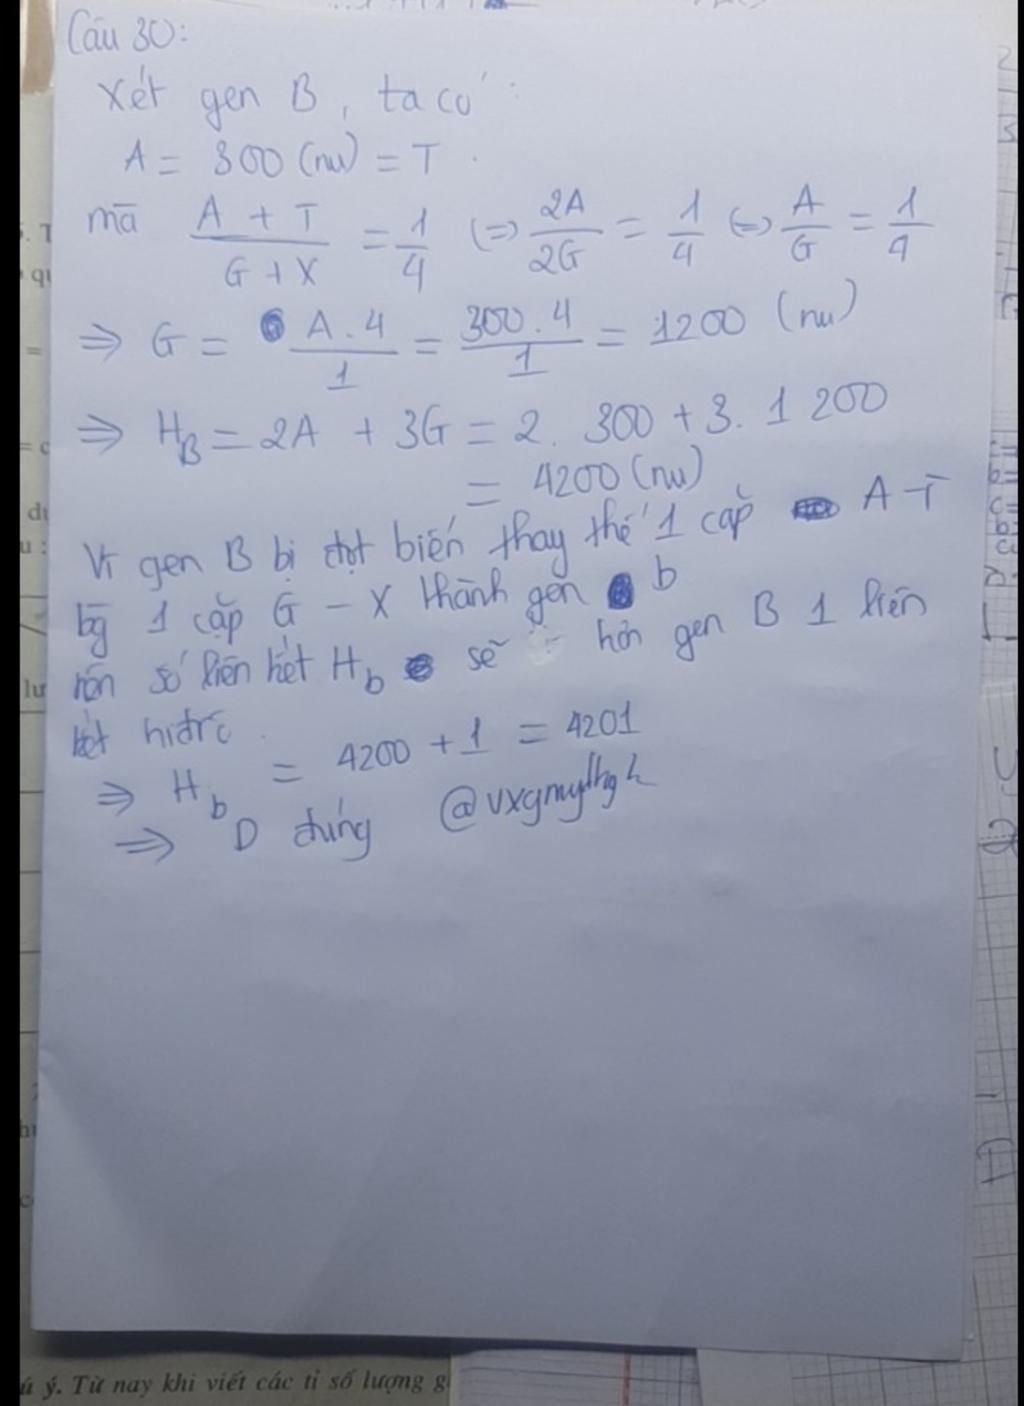 Câu 30:
Xét gen B, ta có:
A = 300 (nu) = T.
mà A + T / G + X = 1/4 (=) 2A/2G = 1/4 (=) A/G = 1/4
=> G = A.4/1 = 300.4/1 = 1200 (nu)
=> H_B = 2A + 3G = 2. 300 + 3. 1 200
= 4200 (nu)
Vì gen B bị đột biến thay thế 1 cặp A - T
bg 1 cặp G - X thành gen b
nên số liên kết H_b sẽ hơn gen B 1 liên
kết hiđrô.
=> H_b = 4200 + 1 = 4201
=> D đúng
ú ý. Từ nay khi viết các tỉ số lượng g